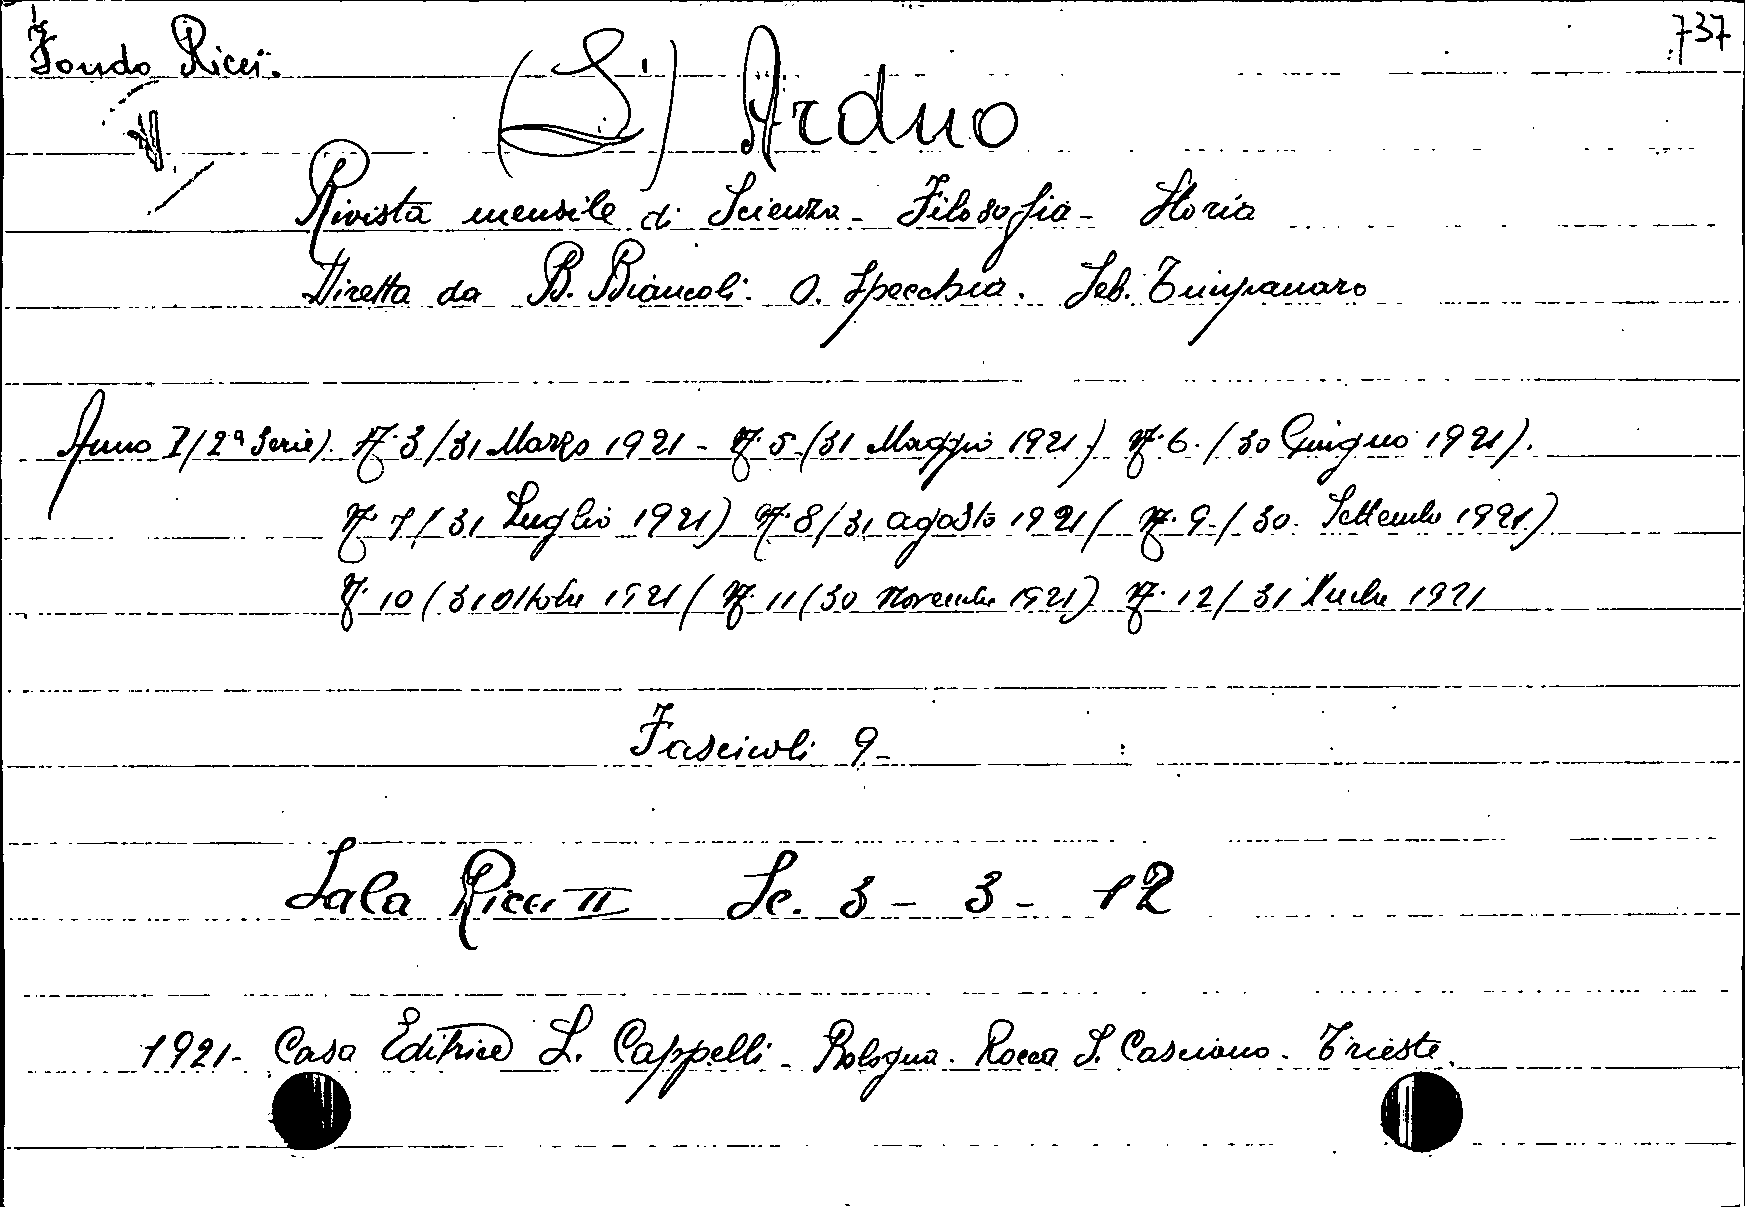 Fondo Ricci.
737
(L') Arduo
Rivista mensile di Scienza - Filosofia - Storia
Diretta da B. Biancoli. O. Specchia. Seb. Timpanaro
Anno I (2ª Serie). N. 3 (31 Marzo 1921 - N. 5 (31 Maggio 1921) N. 6. (30 Giugno 1921).
N. 7 (31 Luglio 1921) N. 8 (31 agosto 1921 ( N. 9 - (30. Settembre 1921)
N. 10 (31 Ottobre 1921 ( N. 11 (30 Novembre 1921) N. 12 (31 Dicembre 1921
Fascicoli 9 -
Sala Ricci II Sc. 3 - 3 - 12
1921 - Casa Editrice L. Cappelli - Bologna. Rocca S. Casciano. Trieste.